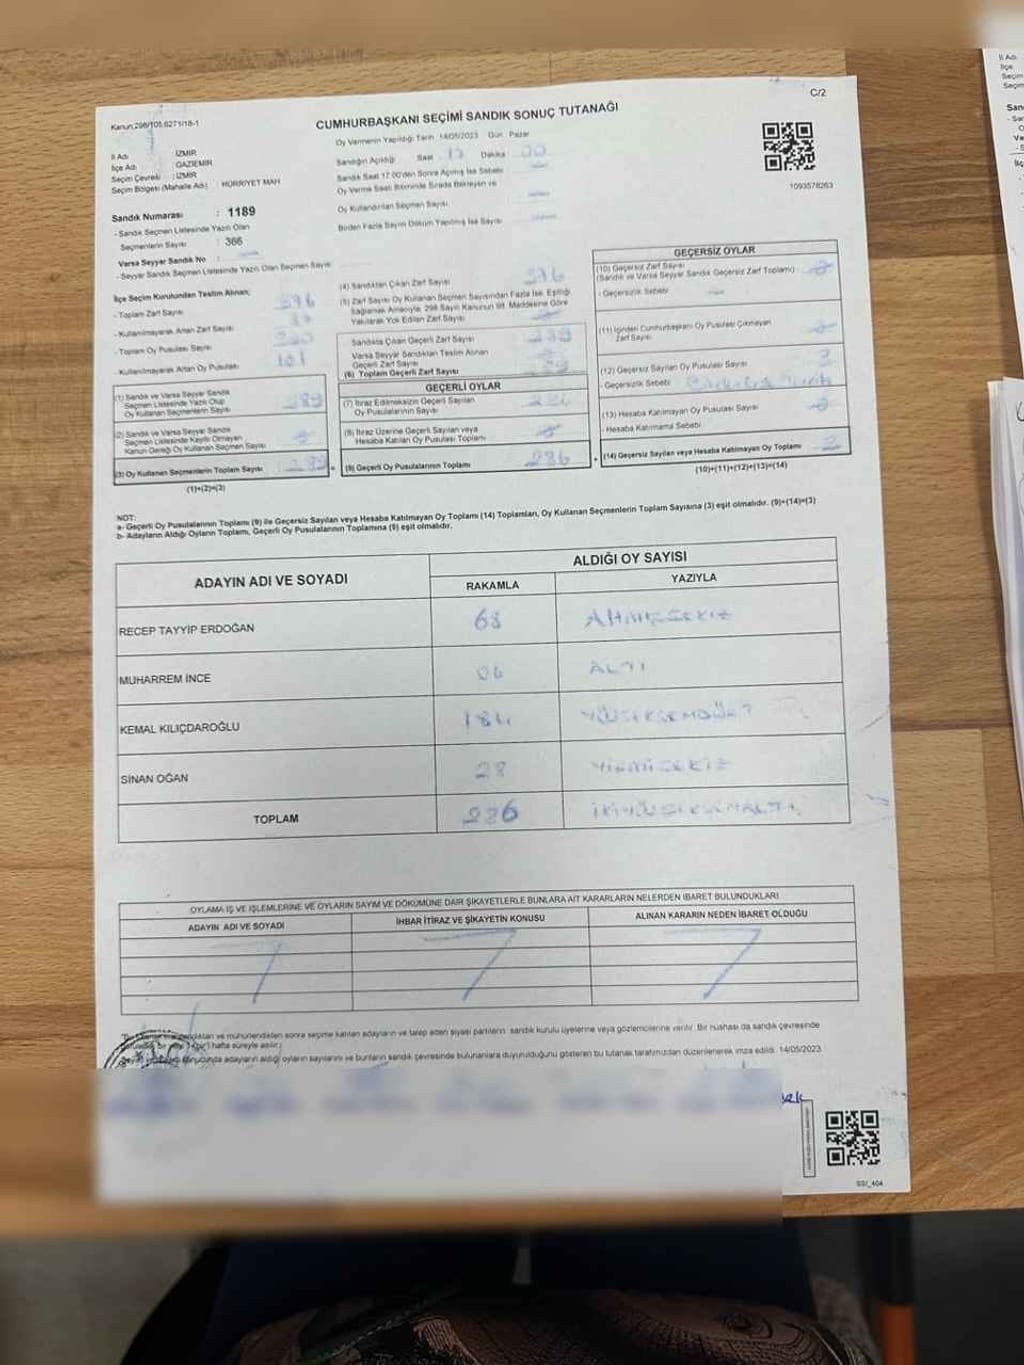 C/2
Kanun:298/105,6271/18-1
CUMHURBAŞKANI SEÇİMİ SANDIK SONUÇ TUTANAĞI
Oy Vermenin Yapıldığı Tarih 14/05/2023 Gün : Pazar
İl Adı : İZMİR
İlçe Adı : GAZİEMİR
Seçim Çevresi : İZMİR
Seçim Bölgesi (Mahalle Adı) : HÜRRİYET MAH
Sandığın Açıldığı Saat Dakika
Sandık Saat 17.00'den Sonra Açılmış İse Sebebi
Oy Verme Saati Bitiminde Sırada Bekleyen ve
Oy Kullandırılan Seçmen Sayısı
Birden Fazla Sayım Döküm Yapılmış İse Sayısı
1093578263
Sandık Numarası : 1189
- Sandık Seçmen Listesinde Yazılı Olan
Seçmenlerin Sayısı : 366
Varsa Seyyar Sandık No
- Seyyar Sandık Seçmen Listesinde Yazılı Olan Seçmen Sayısı
İlçe Seçim Kurulundan Teslim Alınan;
- Toplam Zarf Sayısı
- Kullanılmayarak Artan Zarf Sayısı
- Toplam Oy Pusulası Sayısı
- Kullanılmayarak Artan Oy Pusulası 101
(1) Sandık ve Varsa Seyyar Sandık
Seçmen Listesinde Yazılı Olup
Oy Kullanan Seçmenlerin Sayısı
(2) Sandık ve Varsa Seyyar Sandık
Seçmen Listesinde Kayıtlı Olmayan
Kanun Gereği Oy Kullanan Seçmen Sayısı
(3) Oy Kullanan Seçmenlerin Toplam Sayısı
(1)+(2)=(3)
(4) Sandıktan Çıkan Zarf Sayısı
(5) Zarf Sayısı Oy Kullanan Seçmen Sayısından Fazla İse, Eşitliği
Sağlamak Amacıyla, 298 Sayılı Kanunun 98. Maddesine Göre
Yakılarak Yok Edilen Zarf Sayısı
Sandıkta Çıkan Geçerli Zarf Sayısı
Varsa Seyyar Sandıktan Teslim Alınan
Geçerli Zarf Sayısı
(6) Toplam Geçerli Zarf Sayısı
GEÇERLİ OYLAR
(7) İtiraz Edilmeksizin Geçerli Sayılan
Oy Pusulalarının Sayısı
(8) İtiraz Üzerine Geçerli Sayılan veya
Hesaba Katılan Oy Pusulası Toplamı
(9) Geçerli Oy Pusulalarının Toplamı 286
GEÇERSİZ OYLAR
(10) Geçersiz Zarf Sayısı
(Sandık ve Varsa Seyyar Sandık Geçersiz Zarf Toplamı)
- Geçersizlik Sebebi
(11) İçinden Cumhurbaşkanı Oy Pusulası Çıkmayan
Zarf Sayısı
(12) Geçersiz Sayılan Oy Pusulası Sayısı
- Geçersizlik Sebebi
(13) Hesaba Katılmayan Oy Pusulası Sayısı
- Hesaba Katılmama Sebebi
(14) Geçersiz Sayılan veya Hesaba Katılmayan Oy Toplamı
(10)+(11)+(12)+(13)=(14)
NOT:
a- Geçerli Oy Pusulalarının Toplamı (9) ile Geçersiz Sayılan veya Hesaba Katılmayan Oy Toplamı (14) Toplamları, Oy Kullanan Seçmenlerin Toplam Sayısına (3) eşit olmalıdır. (9)+(14)=(3)
b- Adayların Aldığı Oyların Toplamı, Geçerli Oy Pusulalarının Toplamına (9) eşit olmalıdır.
ADAYIN ADI VE SOYADI
ALDIĞI OY SAYISI
RAKAMLA YAZIYLA
RECEP TAYYİP ERDOĞAN 68 ALTMIŞSEKİZ
MUHARREM İNCE 06 ALTI
KEMAL KILIÇDAROĞLU 184 YÜZSEKSENDÖRT
SİNAN OĞAN 28 YİRMİSEKİZ
TOPLAM 286 İKİYÜZSEKSENALTI
OYLAMA İŞ VE İŞLEMLERİNE VE OYLARIN SAYIM VE DÖKÜMÜNE DAİR ŞİKAYETLERLE BUNLARA AİT KARARLARIN NELERDEN İBARET BULUNDUKLARI
ADAYIN ADI VE SOYADI İHBAR İTİRAZ VE ŞİKAYETİN KONUSU ALINAN KARARIN NEDEN İBARET OLDUĞU
ve mühürlendikten sonra seçime katılan adayların ve talep eden siyasi partilerin sandık kurulu üyelerine veya gözlemcilerine verilir. Bir nüshası da sandık çevresinde
hafta süreyle asılır.)
adayların aldığı oyların sayılarını ve bunların sandık çevresinde bulunanlara duyurulduğunu gösteren bu tutanak tarafımızdan düzenlenerek imza edildi. 14/05/2023
SSİ_404